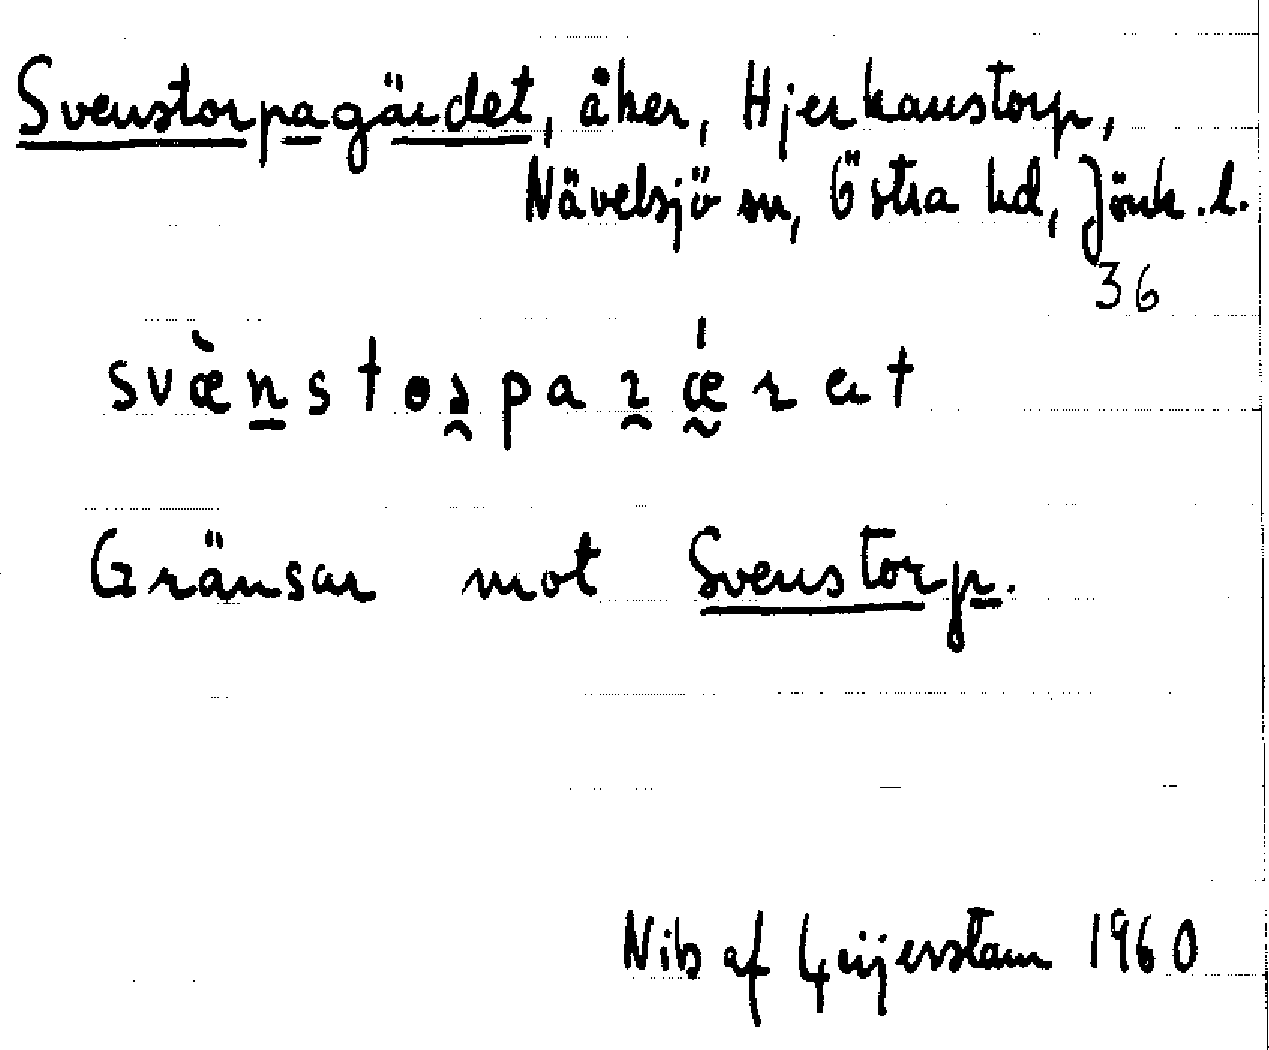 Svenstorpagärdet, åker, Hjerkanstorp,
Nävelsjö sn, Östra hd, Jönk. l.
36
Gränsar mot Svenstorp.
Nils af Geijerstam 1960